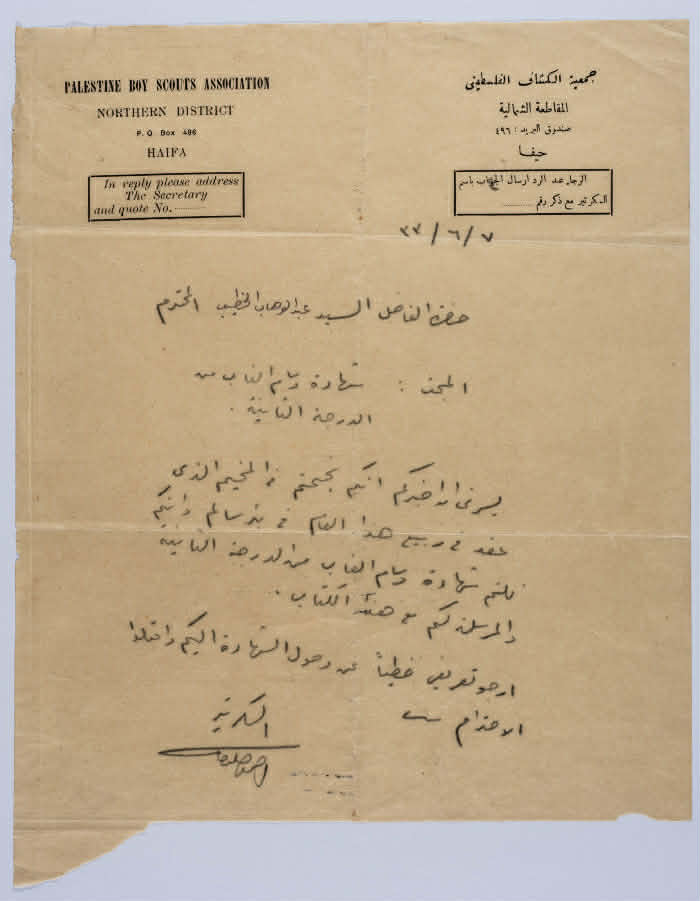 PALESTINE BOY SCOUTS ASSOCIATION
NORTHERN DISTRICT
P. O Box 496
HAIFA
In reply please address
The Secretary
and quote No. ............
جمعية الكشاف الفلسطيني
المقاطعة الشمالية
صندوق البريد : ٤٩٦
حيفا
الرجاء عند الرد ارسال الجواب باسم
السكرتير مع ذكر رقم ............
٣٣/٦/٧
حضرة الفاضل السيد عبد الوهاب الخطيب المحترم
المبحث : شهادة وسام الغاب من
الدرجة الثانية .
يسرني ان اخبركم انكم نجحتم في المخيم الذي
عقد في ربيع هذا العام في بئر سالم وانكم
نلتم شهادة وسام الغاب من الدرجة الثانية
والمرسلة لكم مع هذا الكتاب .
ارجو تعريفي خطياً عن وصول الشهادة اليكم واقبلوا
الاحترام
السكرتير